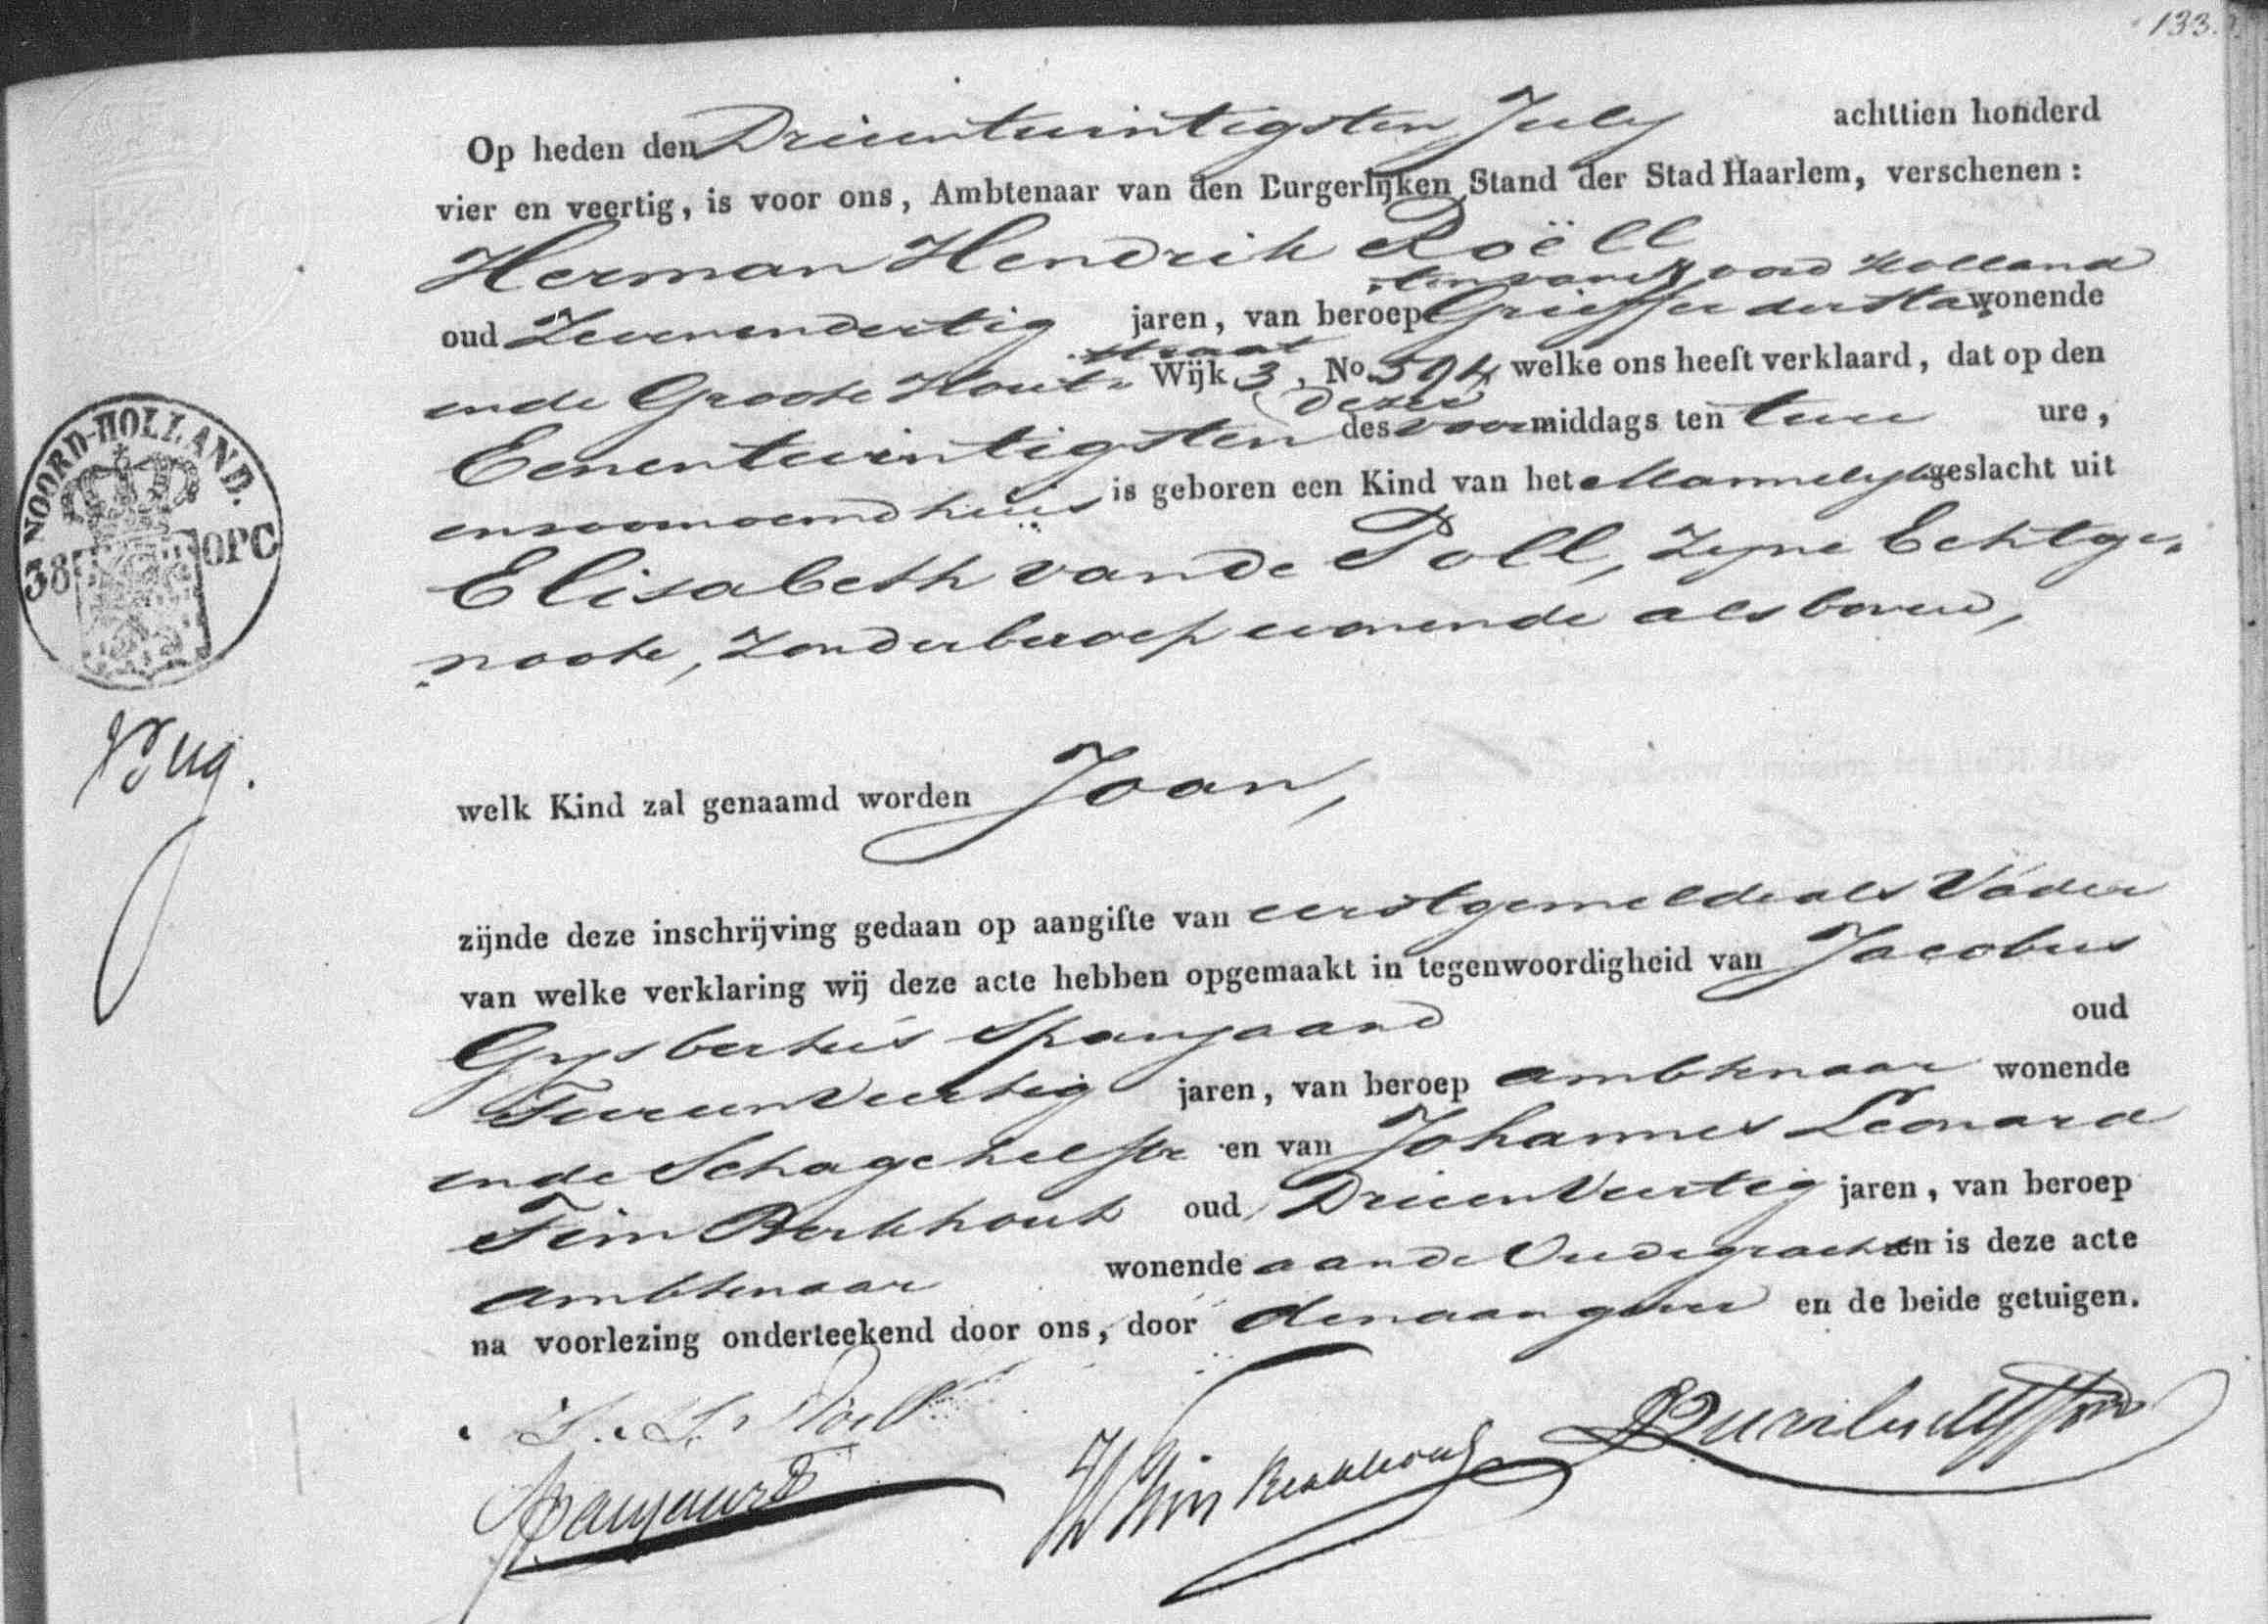 133.
Op heden den Drieentwintigsten July achttien honderd
vier en veertig, is voor ons, Ambtenaar van den Burgerlijken Stand der Stad Haarlem, verschenen:
Herman Hendrik Roëll
ten van Noord Holland
oud Zevenendertig jaren, van beroep Griffier der Sta wonende
straat
in de Groote Hout- Wijk 3, No. 594 welke ons heeft verklaard, dat op den
dezer
Eenentwintigsten des voormiddags ten twee ure,
in voornoemd huis is geboren een Kind van het Mannelyk geslacht uit
Elisabeth van de Poll, Zyne Echtge-
noote, Zonder beroep wonende als boven,
NOORD-HOLLAND.
38 OPC
welk Kind zal genaamd worden Joan,
zijnde deze inschrijving gedaan op aangifte van eerstgemelde als Vader
van welke verklaring wij deze acte hebben opgemaakt in tegenwoordigheid van Jacobus
Gysbertus Spanjaard oud
Tweeenveertig jaren, van beroep ambtenaar wonende
in de Schagchelstr en van Johannes Leonard
Tim Berkhout oud Drieenveertig jaren, van beroep
ambtenaar wonende aan de Oudegracht en is deze acte
na voorlezing onderteekend door ons, door den aangever en de beide getuigen.
H. H. Röell
Spanjaard
Tim Berkhout